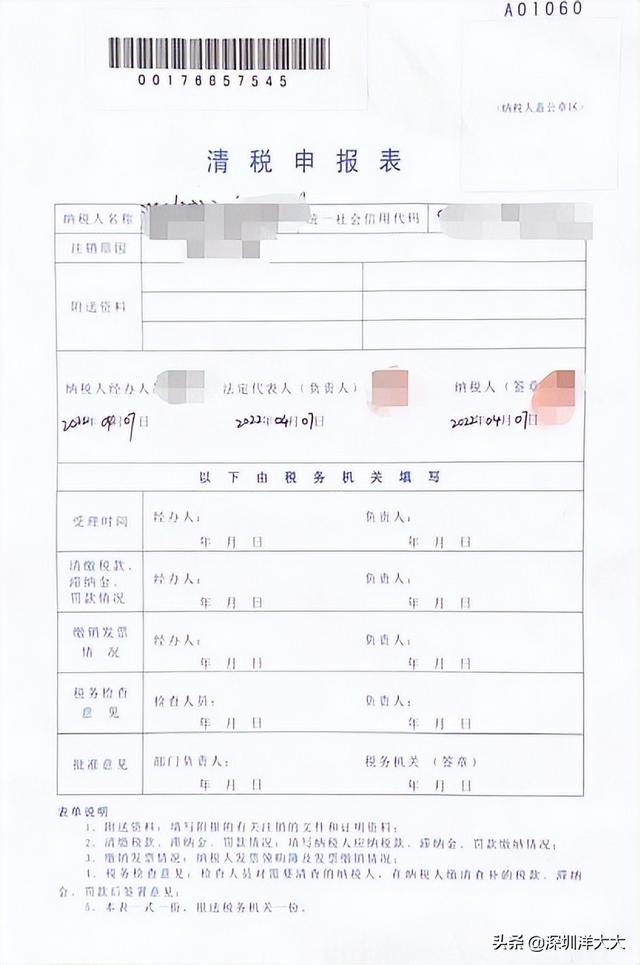 A01060
00176857545
（纳税人盖公章区）
清税申报表
纳税人名称 统一社会信用代码
注销原因
附送资料
纳税人经办人： 法定代表人（负责人） 纳税人（签章
2022年04月07日 2022年04月07日 2022年04月07日
以下由税务机关填写
受理时间 经办人： 负责人：
年 月 日 年 月 日
清缴税款、
滞纳金、
罚款情况 经办人： 负责人：
年 月 日 年 月 日
缴销发票
情况 经办人： 负责人：
年 月 日 年 月 日
税务检查
意见 检查人员： 负责人：
年 月 日 年 月 日
批准意见 部门负责人： 税务机关（签章）
年 月 日 年 月 日
表单说明
1、附送资料：填写附报的有关注销的文件和证明资料；
2、清缴税款、滞纳金、罚款情况：填写纳税人应纳税款、滞纳金、罚款缴纳情况；
3、缴销发票情况：纳税人发票领购簿及发票缴销情况；
4、税务检查意见：检查人员对需要清查的纳税人，在纳税人缴清查补的税款、滞纳
金、罚款后签署意见；
5、本表一式一份，报送税务机关一份。
头条 @深圳洋大大